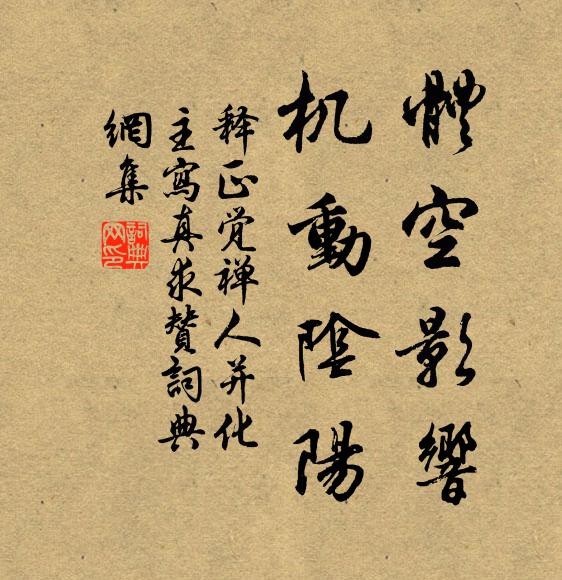 體空影響
机動陰陽
释正觉禅人并化
主寫真求贊詞典
網集
詞典網印